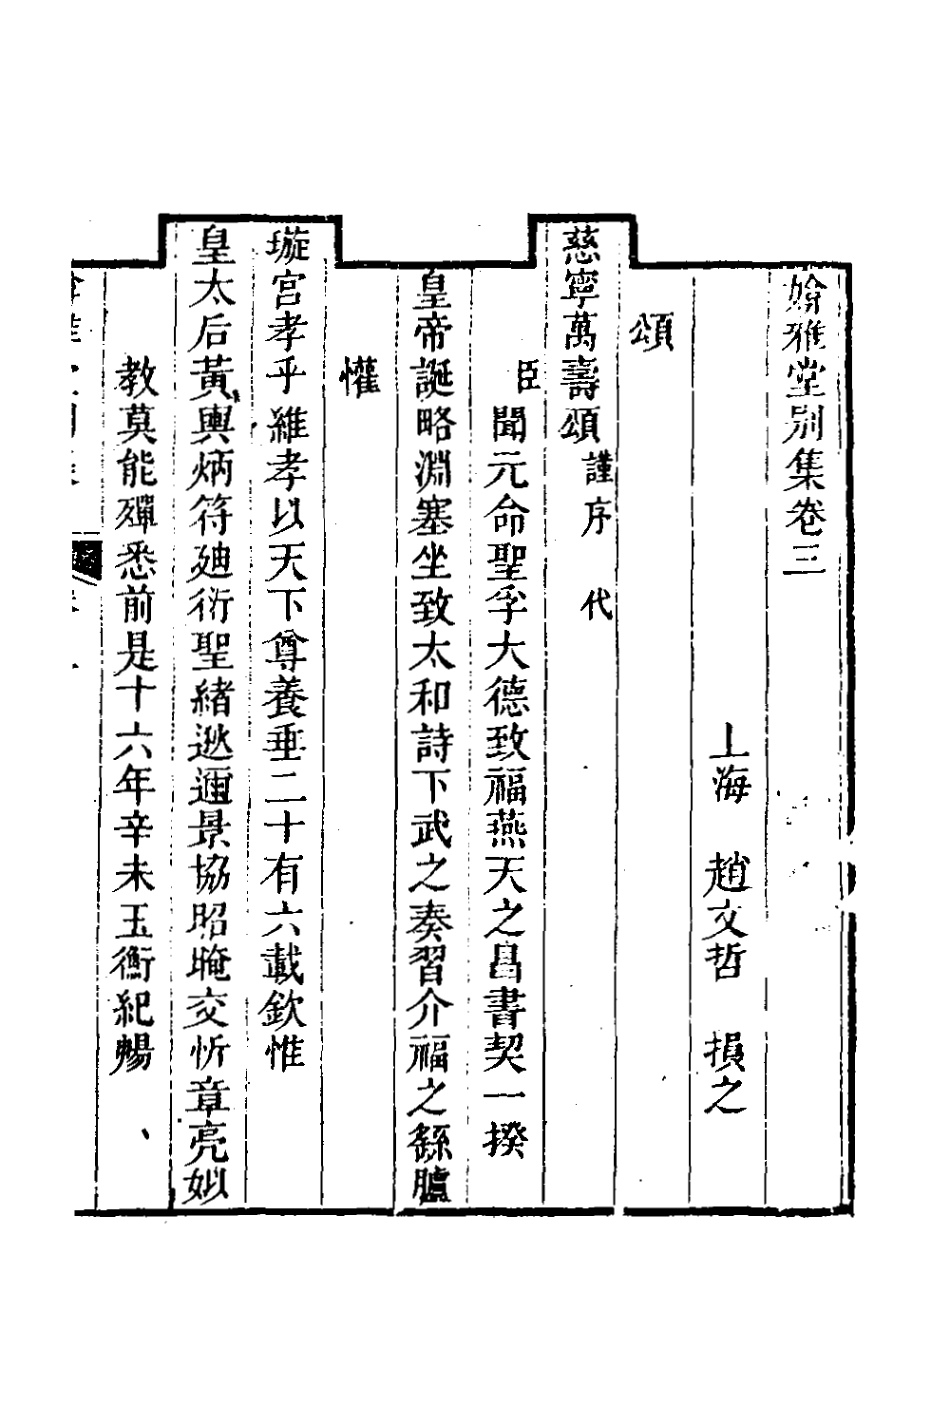 媕雅堂别集卷三
上海 趙文哲 損之
頌
慈寧萬壽頌 謹序 代
臣聞元命聖孚大德致福燕天之昌書契一揆
皇帝誕略淵塞坐致太和詩下武之奏習介福之繇臚
懽
璇宮孝乎維孝以天下尊養垂二十有六載欽惟
皇太后黃輿炳符廸衍聖緒逖邇景協昭晻交忻章亮姒
教莫能殫悉前是十六年辛未玉衡紀暢